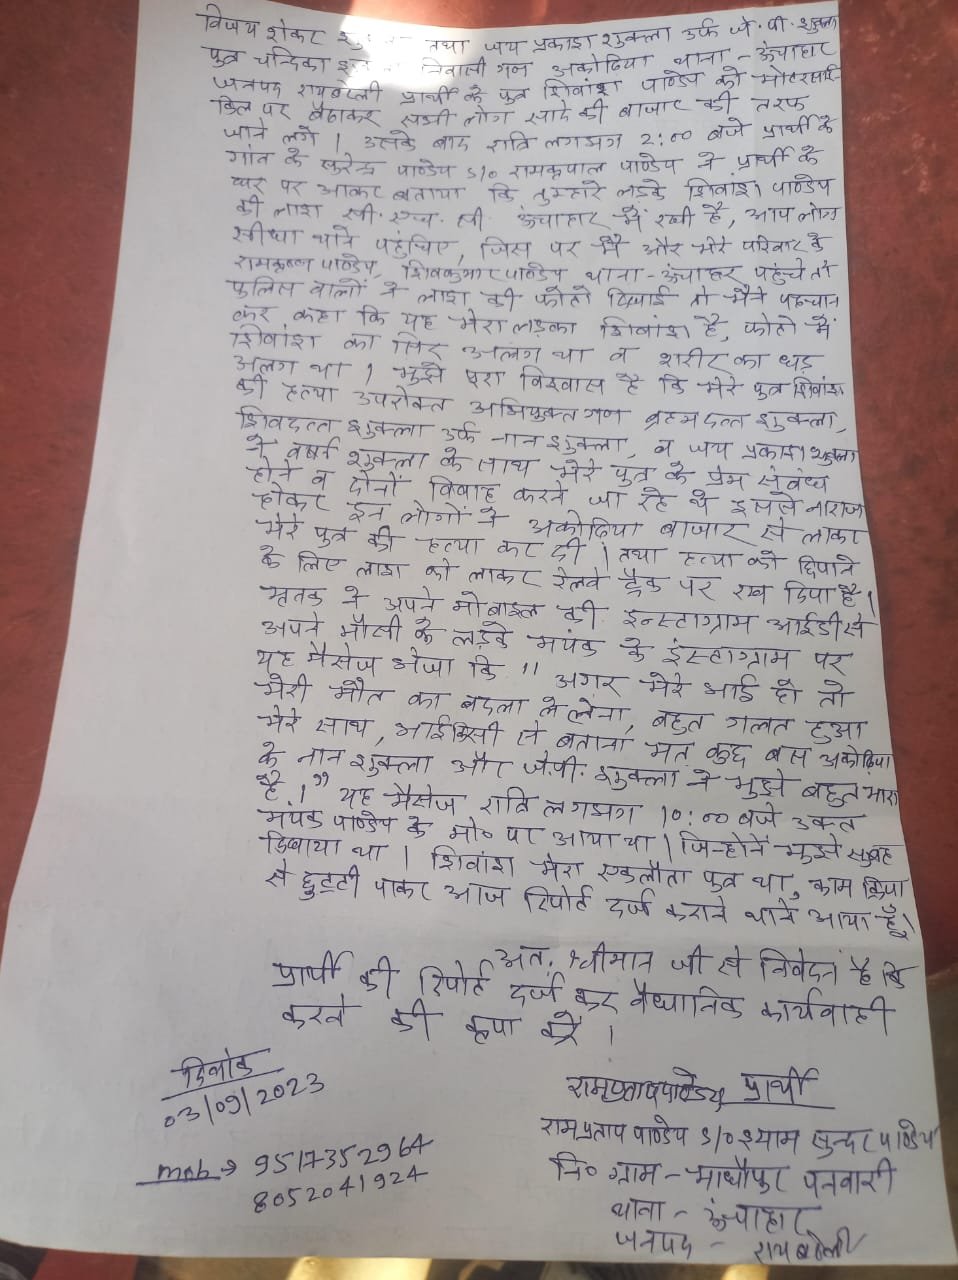 विजय शंकर तथा जय प्रकाश शुक्ला उर्फ जे. पी. शुक्ला
पुत्र चन्द्रिका निवासी गण अकोढ़िया थाना - ऊंचाहार
जनपद रायबरेली प्रार्थी के पुत्र शिवांश पाण्डेय को मोटरसाई-
किल पर बैठाकर सभी लोग सादे की बाजार की तरफ
जाने लगे । उसके बाद रात्रि लगभग 2:00 बजे प्रार्थी के
गांव के सुरेन्द्र पाण्डेय S/o रामकृपाल पाण्डेय ने प्रार्थी के
घर पर आकर बताया कि तुम्हारे लड़के शिवांश पाण्डेय
की लाश सी. एच. सी. ऊंचाहार में रखी है, आप लोग
सीधा थाने पहुंचिए, जिस पर मैं और मेरे परिवार के
रामकृष्ण पाण्डेय, शिवकुमार पाण्डेय थाना - ऊंचाहार पहुंचे तो
पुलिस वालों ने लाश की फोटो दिखाई तो मैंने पहचान
कर कहा कि यह मेरा लड़का शिवांश है, फोटो में
शिवांश का सिर अलग था व शरीर का धड़
अलग था । मुझे पूरा विश्वास है कि मेरे पुत्र शिवांश
की हत्या उपरोक्त अभियुक्त गण ब्रह्मदत्त शुक्ला,
शिवदत्त शुक्ला उर्फ नान शुक्ला, व जय प्रकाश शुक्ला
ने शुक्ला के साथ मेरे पुत्र के प्रेम संबंध
होने व दोनों विवाह करने जा रहे थे इससे नाराज
होकर इन लोगों ने अकोढ़िया बाजार से लाकर
मेरे पुत्र की हत्या कर दी । तथा हत्या को छिपाने
के लिए लाश को लाकर रेलवे ट्रैक पर रख दिया है।
मृतक ने अपने मोबाइल की इन्स्टाग्राम आईडी से
अपने मौसी के लड़के मयंक के इंस्टाग्राम पर
यह मैसेज भेजा कि " अगर मेरे भाई हो तो
मेरी मौत का बदला ले लेना, बहुत गलत हुआ
मेरे साथ, भाई किसी से बताना मत कुछ बस अकोढ़िया
के नान शुक्ला और जे.पी. शुक्ला ने मुझे बहुत मारा
है ।" यह मैसेज रात्रि लगभग 10:00 बजे उक्त
मयंक पाण्डेय के मो० पर आया था । जिन्होनें मुझे सुबह
दिखाया था । शिवांश मेरा एकलौता पुत्र था, काम क्रिया
से छुट्टी पाकर आज रिपोर्ट दर्ज कराने थाने आया हूँ।
अतः श्रीमान जी से निवेदन है कि
प्रार्थी की रिपोर्ट दर्ज कर वैधानिक कार्यवाही
करने की कृपा करें ।
दिनांक
03/09/2023
रामप्रताप पाण्डेय प्रार्थी
रामप्रताप पाण्डेय S/o श्याम सुन्दर पाण्डेय
mob → 9517352964
8052041924
नि० ग्राम - माधौपुर पनवारी
थाना - ऊंचाहार
जनपद - रायबरेली